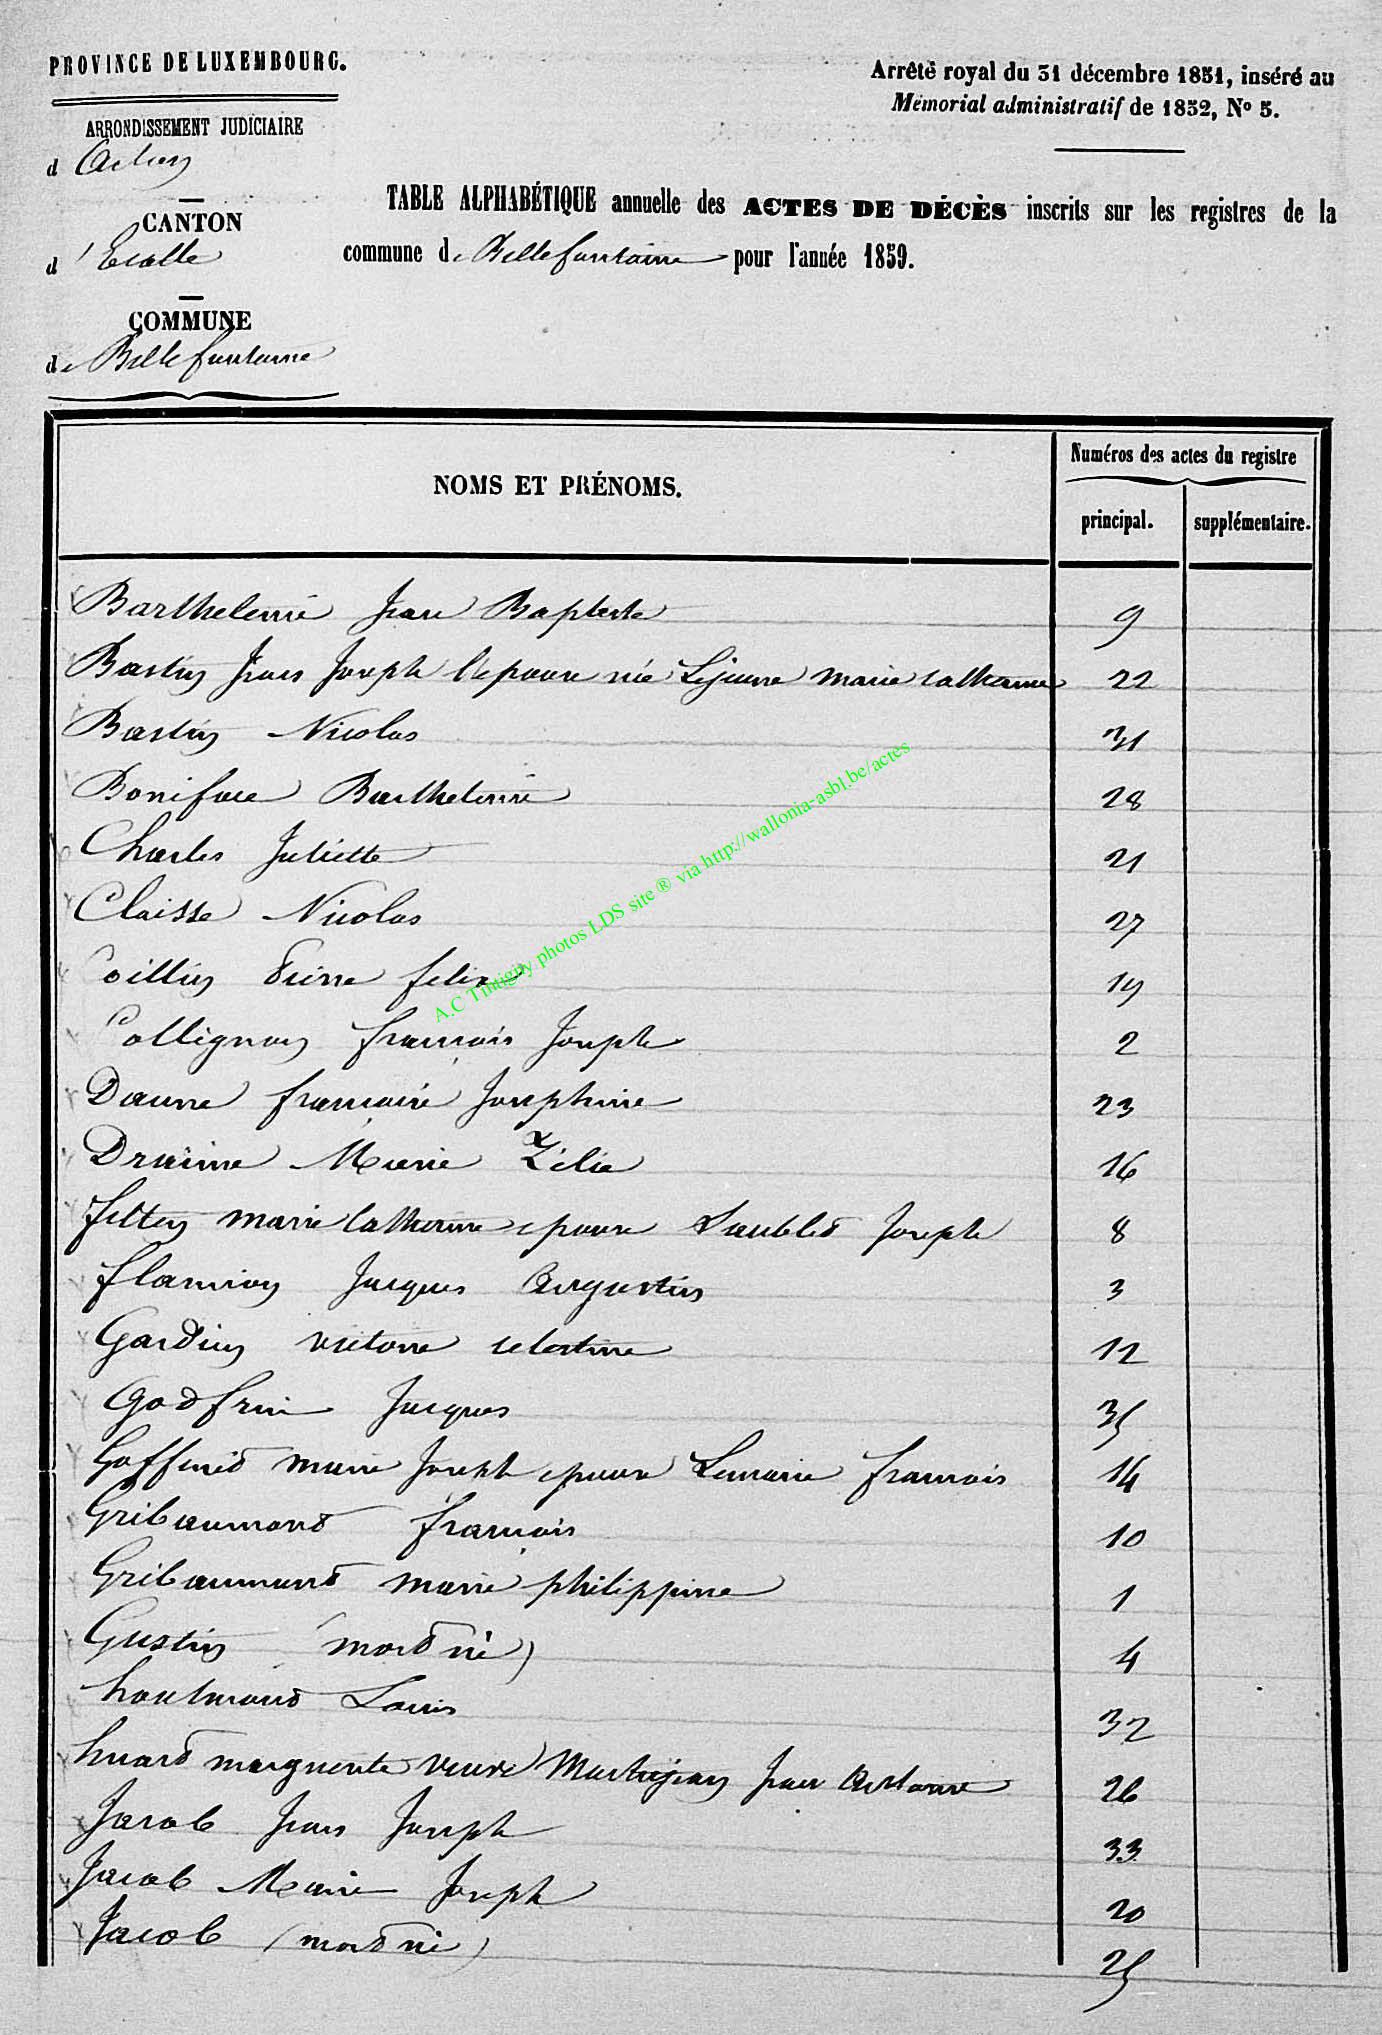 PROVINCE DE LUXEMBOURG.
Arrêté royal du 31 décembre 1851, inséré au
Mémorial administratif de 1852, No 5.
ARRONDISSEMENT JUDICIAIRE
d Arlon
CANTON
d' Etalle
COMMUNE
de Bellefontaine
TABLE ALPHABÉTIQUE annuelle des ACTES DE DÉCÈS inscrits sur les registres de la
commune de Bellefontaine pour l'année 1859.
NOMS ET PRÉNOMS.
Numéros des actes du registre
principal. supplémentaire.
Barthelemi Jean Baptiste 9
Bastin Jean Joseph l'epouse née Lejeune marie catherine 22
Bastin Nicolas 31
Boniface Barthelemi 28
Charles Juliette 21
Claisse Nicolas 27
Collin Pierre felix 19
Collignon francois Joseph 2
Daune francoise Josephine 23
Draime Marie Zélie 16
felten marie catherine epouse Joseph 8
flamion Jacques Augustin 3
Gardin victoire celestine 12
Godfrin Jacques 35
Goffinet marie Joseph epouse Lemaire francois 14
Gribaumont francois 10
Gribaumont marie philippine 1
Gustin (mort né) 4
Louis 32
huard marguerite veuve Jean Antoine 26
Jacob Jean Joseph 33
Jacob Marie Joseph 20
Jacob (mort né) 25
A.C Tintigny photos LDS site ® via http://wallonia-asbl.be/actes